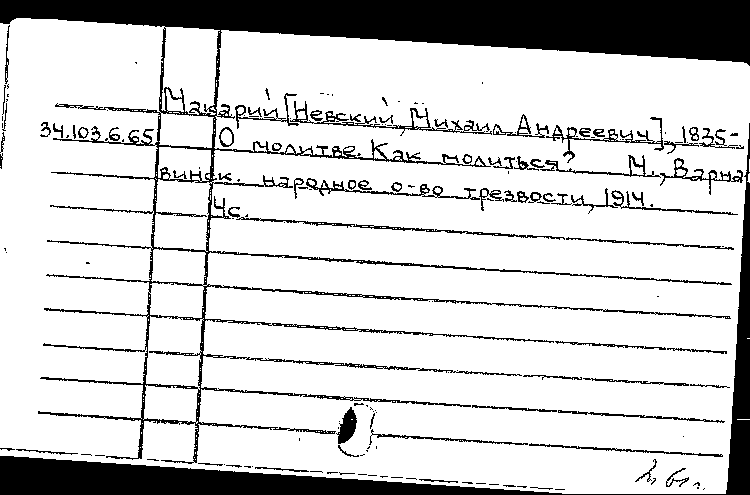 Макарий [Невский, Михаил Андреевич], 1835-
34.103.6.65 О молитве. Как молиться? М., Варна
винск. народное о-во трезвости, 1914.
4с.